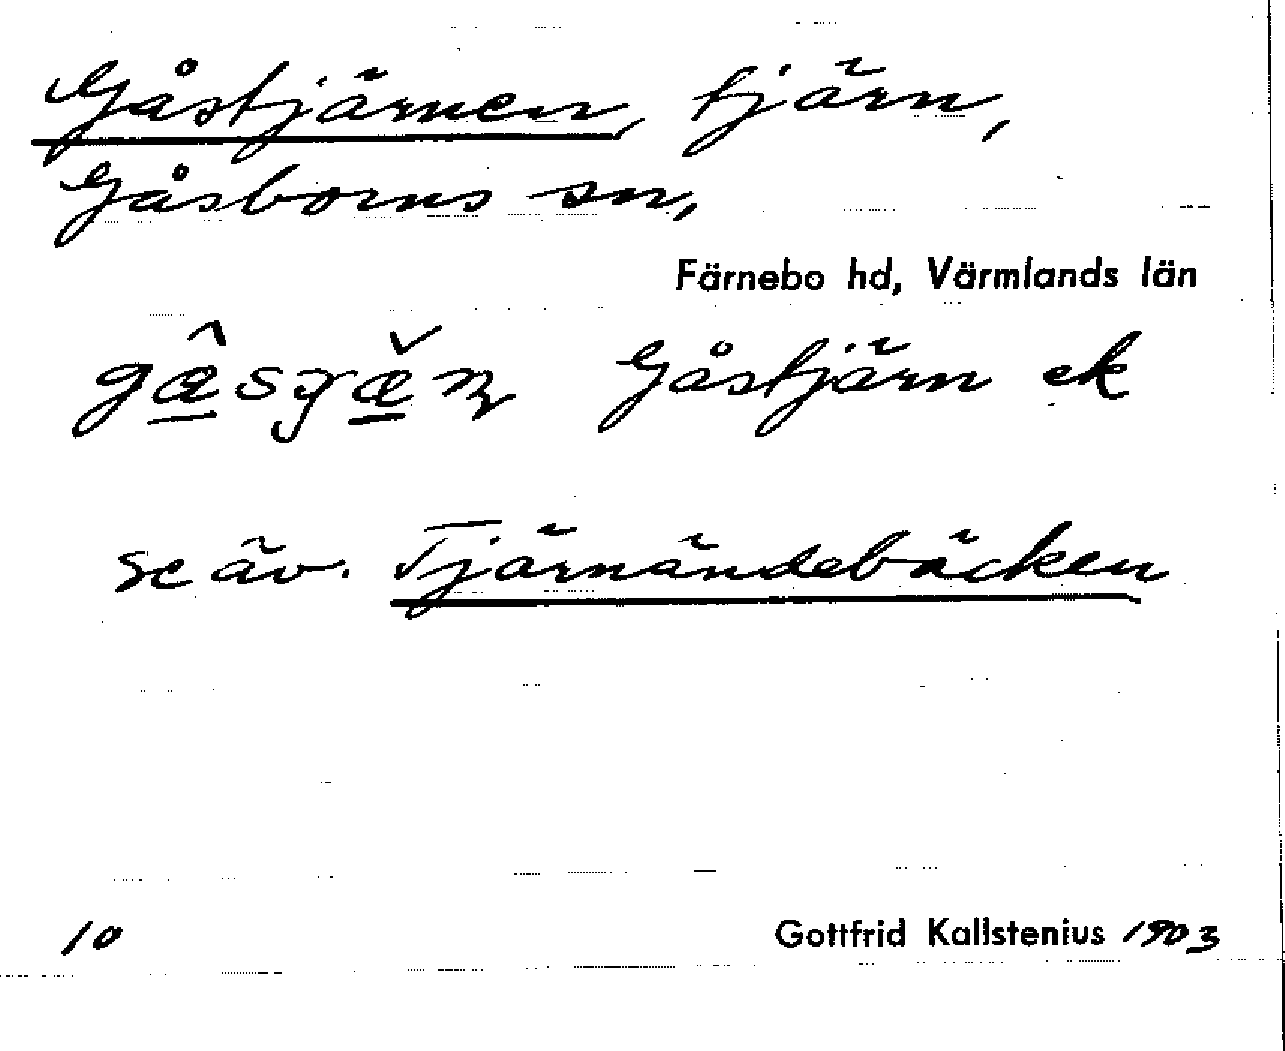 Gåstjärnen, tjärn,
Gåsborns sn,
Färnebo hd, Värmlands län
Gåstjärn ek
se äv. Tjärnändebäcken
10 Gottfrid Kallstenius 1903